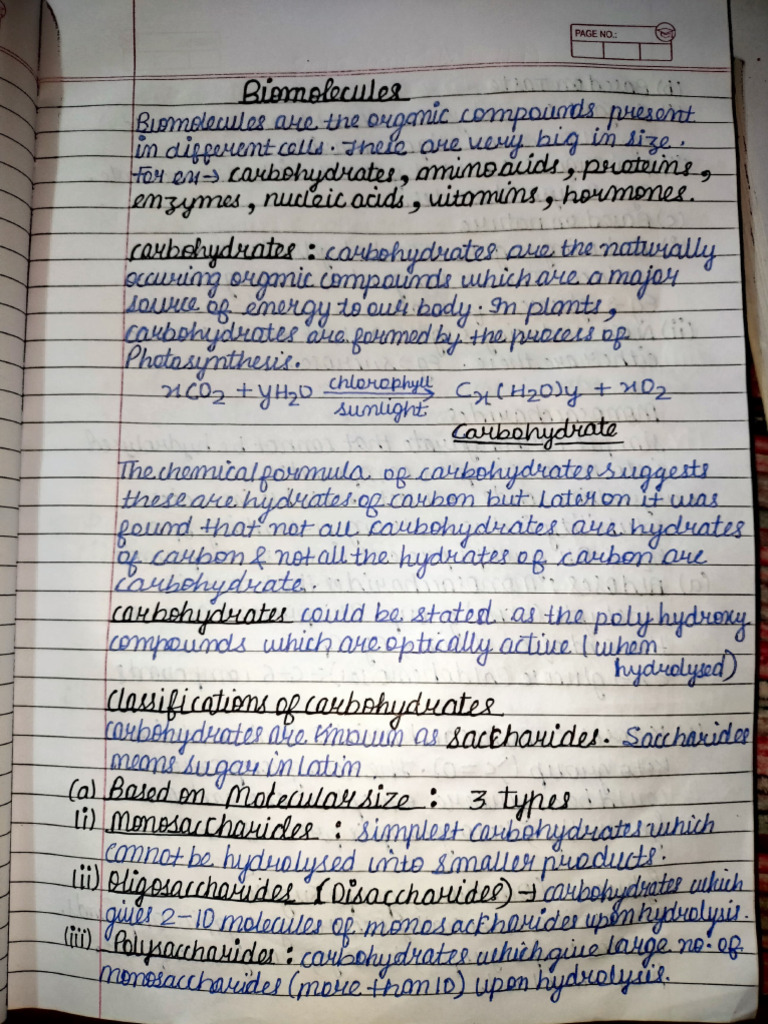 PAGE NO.:
Biomolecules
Biomolecules are the organic compounds present
in different cells. These are very big in size.
For ex→ carbohydrates, amino acids, proteins,
enzymes, nucleic acids, vitamins, hormones.
carbohydrates : carbohydrates are the naturally
occuring organic compounds which are a major
source of energy to our body. In plants,
carbohydrates are formed by the process of
Photosynthesis.
xCO2 + yH2O chlorophyll Cx(H2O)y + xO2
sunlight
carbohydrate
The chemical formula of carbohydrates suggests
these are hydrates of carbon but later on it was
found that not all carbohydrates are hydrates
of carbon & not all the hydrates of carbon are
carbohydrate.
carbohydrates could be stated as the poly hydroxy
compounds which are optically active (when
hydrolysed)
classifications of carbohydrates
carbohydrates are known as saccharides. Saccharides
means sugar in latin
(a) Based on Molecular size : 3 types
(i) Monosaccharides : simplest carbohydrates which
cannot be hydrolysed into smaller products.
(ii) Oligosaccharides (Disaccharides) → carbohydrates which
gives 2-10 molecules of monosackharides upon hydrolysis.
(iii) Polysaccharides : carbohydrates which give large no. of
monosaccharides (more than 10) upon hydrolysis.